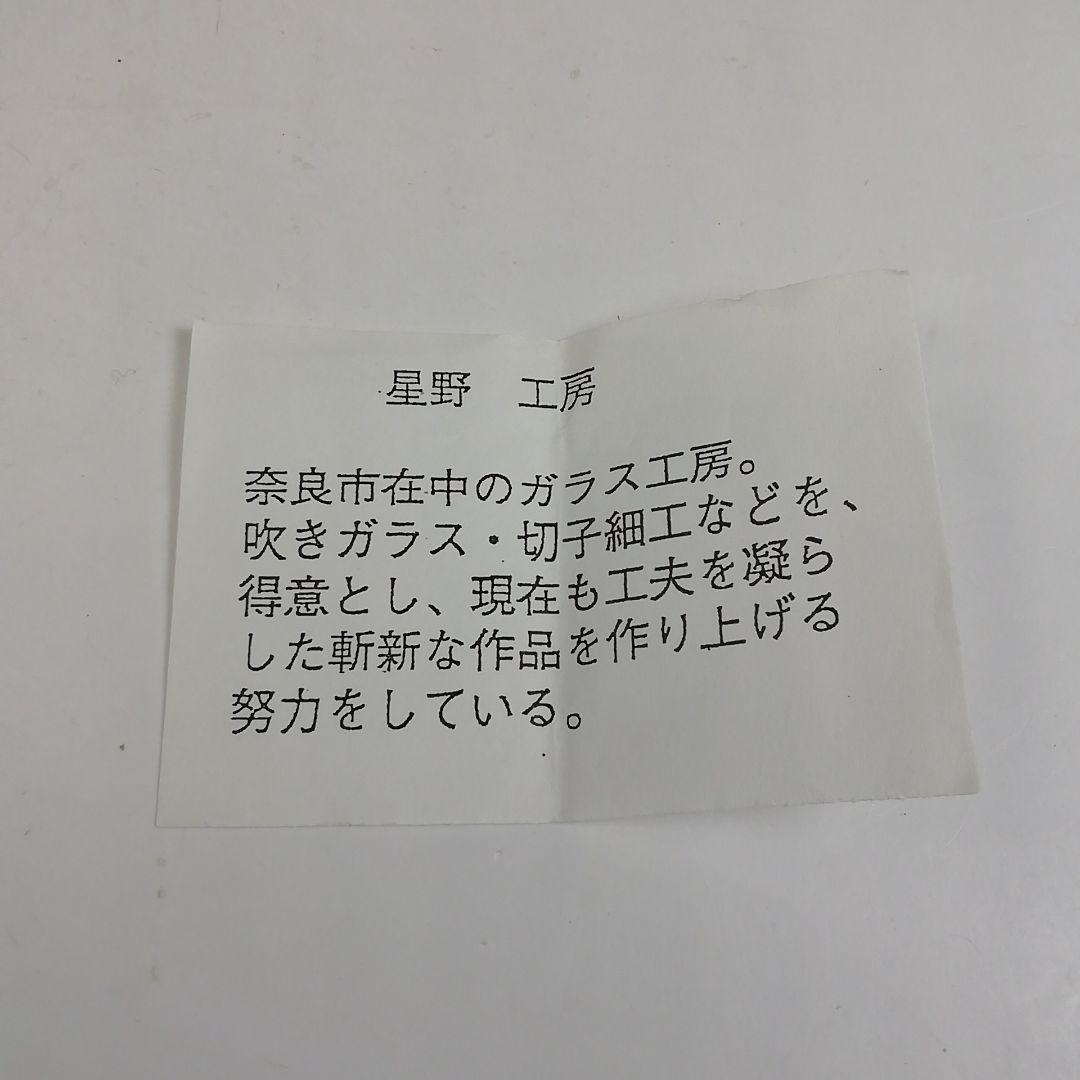 星野　工房
奈良市在中のガラス工房。
吹きガラス・切子細工などを、
得意とし、現在も工夫を凝ら
した斬新な作品を作り上げる
努力をしている。